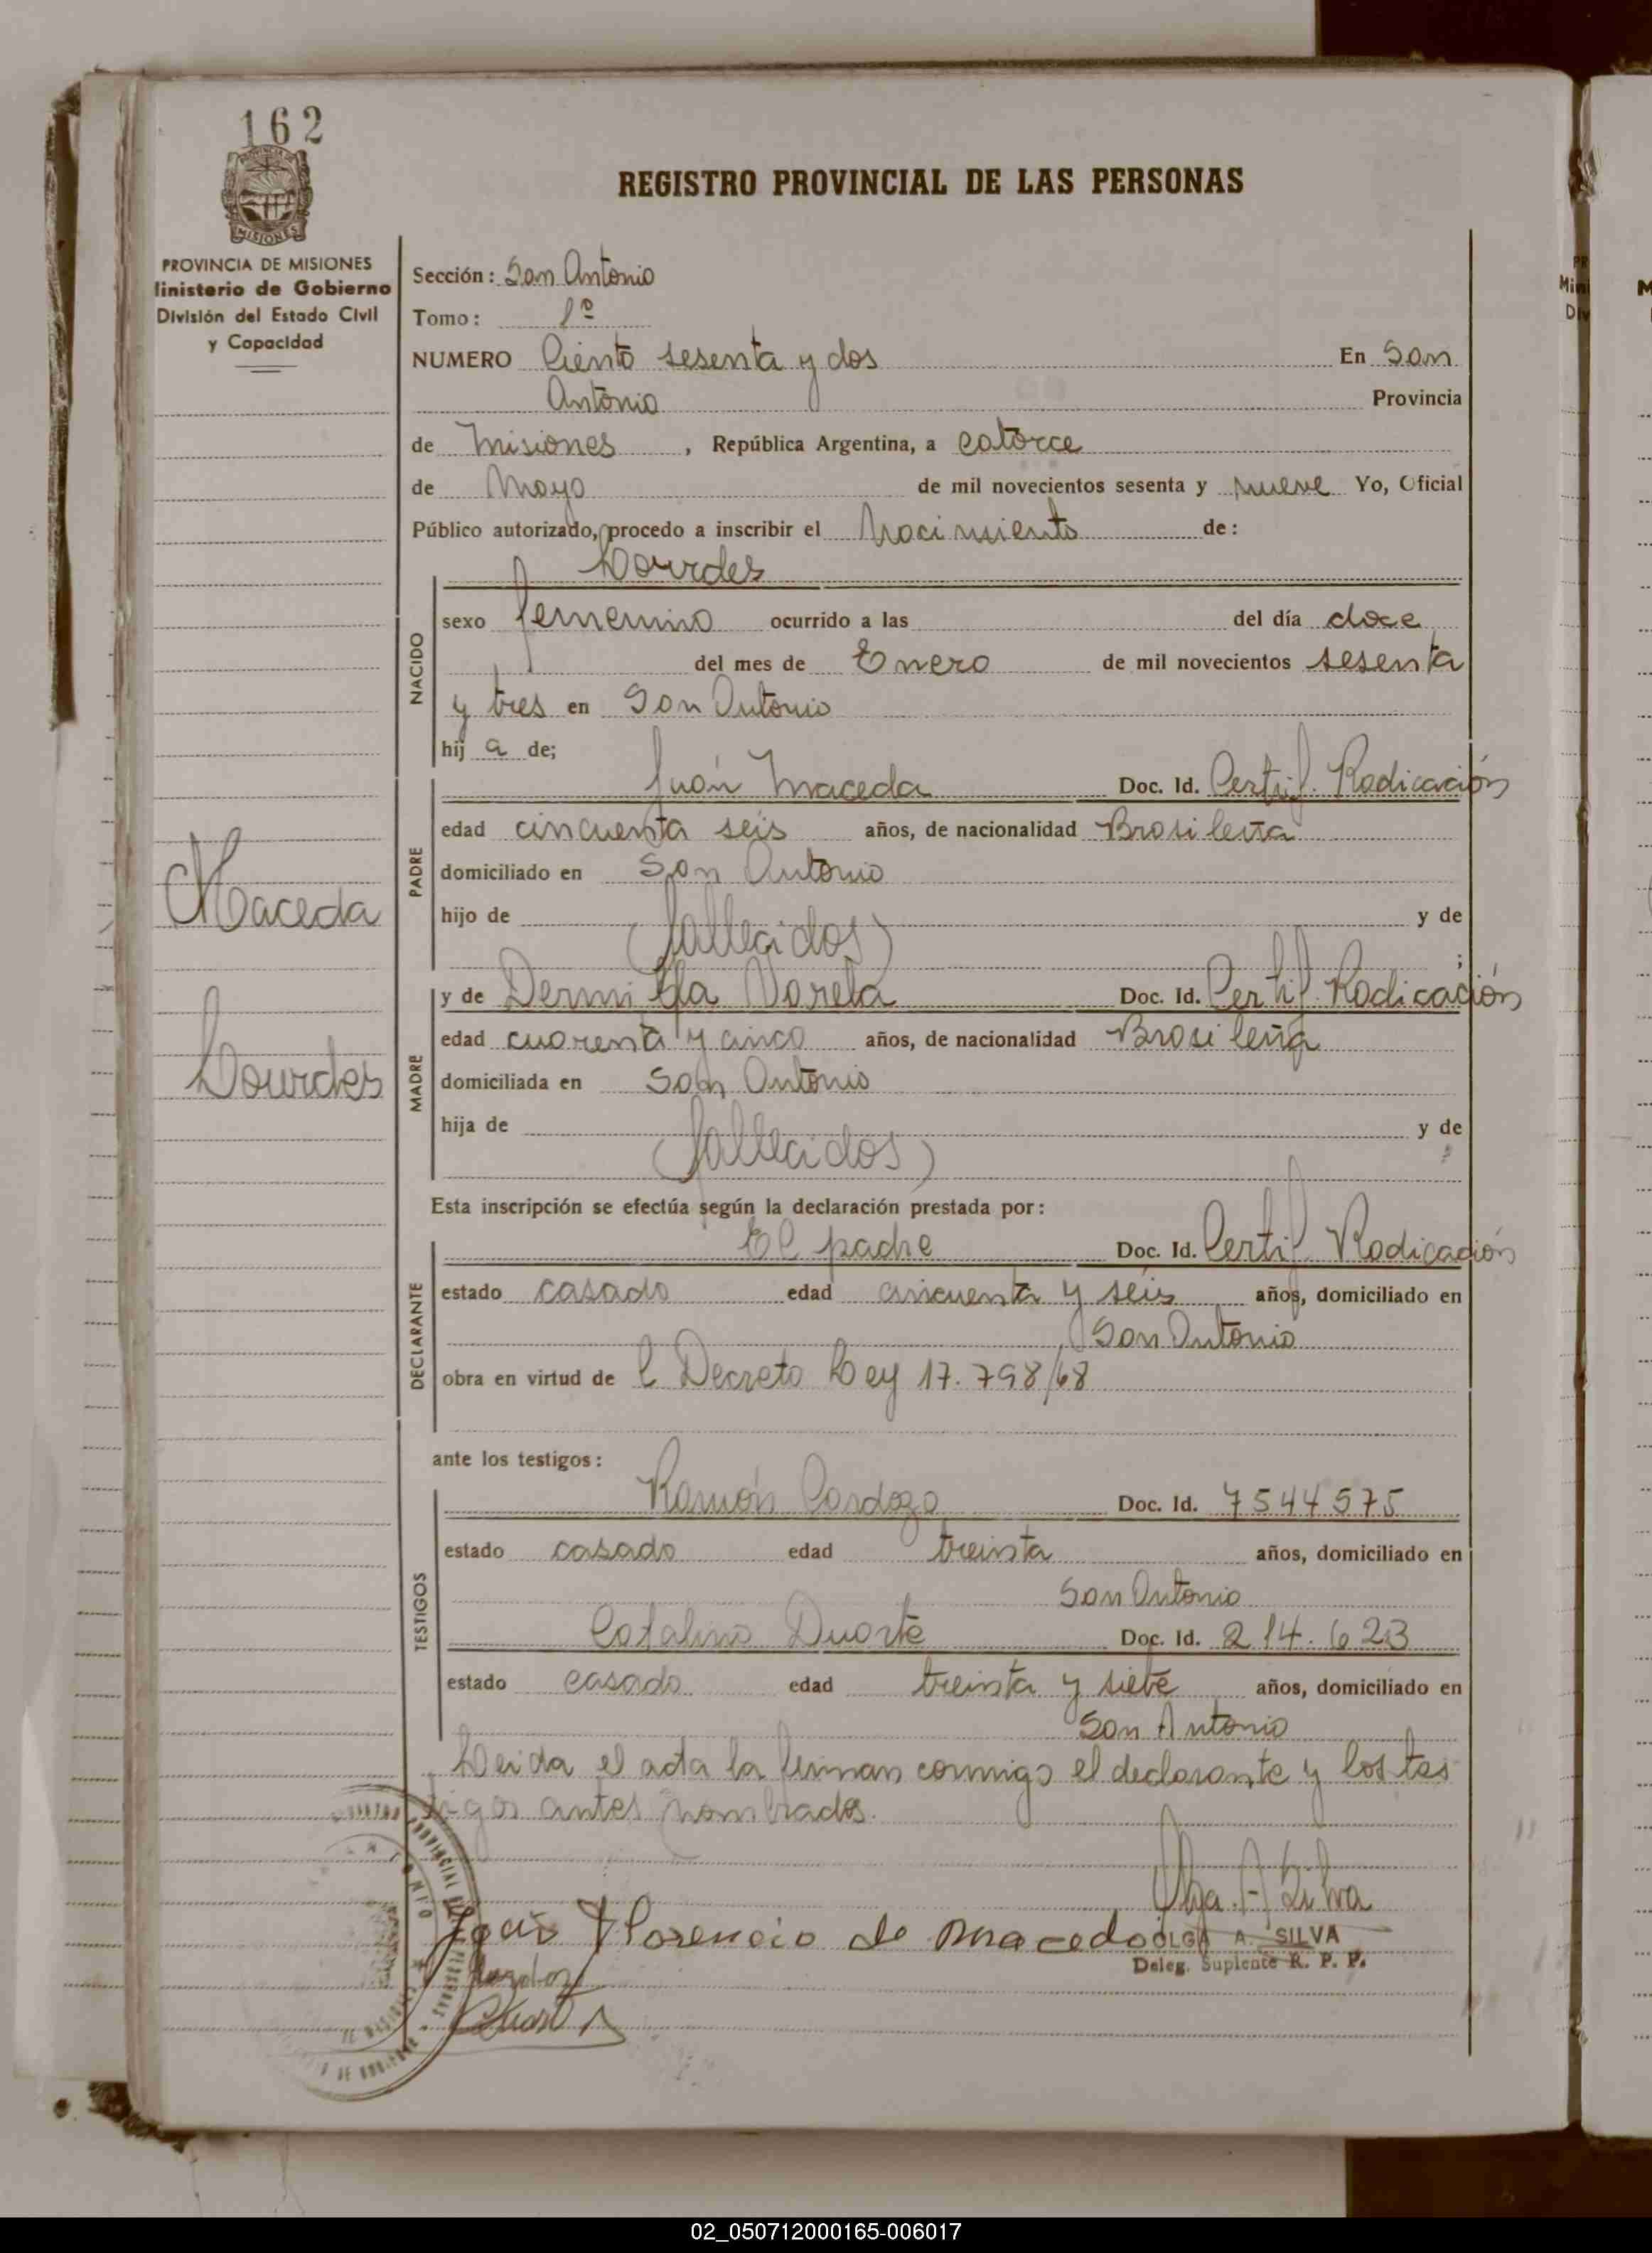 162
PROVINCIA DE
MISIONES
REGISTRO PROVINCIAL DE LAS PERSONAS
PROVINCIA DE MISIONES
linisterio de Gobierno
División del Estado Civil
y Capacidad
Sección: San Antonio
Tomo: 1º
NUMERO Ciento sesenta y dos En San
Antonio Provincia
de Misiones, República Argentina, a catorce
de Mayo de mil novecientos sesenta y nueve Yo, Oficial
Público autorizado, procedo a inscribir el Nacimiento de:
Lourdes
NACIDO
sexo femenino ocurrido a las del día doce
del mes de Enero de mil novecientos sesenta
y tres en San Antonio
hij a de;
PADRE
Juan Maceda Doc. Id. Certif. Radicación
edad cincuenta seis años, de nacionalidad Brasileña
domiciliado en San Antonio
hijo de y de
(fallecidos) ;
Maceda
Lourdes
MADRE
y de Dermilda Varela Doc. Id. Certif. Radicación
edad cuarenta y cinco años, de nacionalidad Brasileña
domiciliada en San Antonio
hija de y de
(fallecidos) ;
Esta inscripción se efectúa según la declaración prestada por:
DECLARANTE
El padre Doc. Id. Certif Radicación
estado casado edad cincuenta y seis años, domiciliado en
San Antonio
obra en virtud de l Decreto Ley 17.798/68
ante los testigos:
TESTIGOS
Ramón Cardozo Doc. Id. 7544575
estado casado edad treinta años, domiciliado en
San Antonio
Catalino Duarte Doc. Id. 214.623
estado casado edad treinta y siete años, domiciliado en
San Antonio
Leida el acta la firman conmigo el declarante y los tes
tigos antes nombrados.
Olga A Silva
Florencio de Macedo
OLGA A. SILVA
Deleg. Suplente R. P. P.
Cardozo
Duarte
02_050712000165-006017